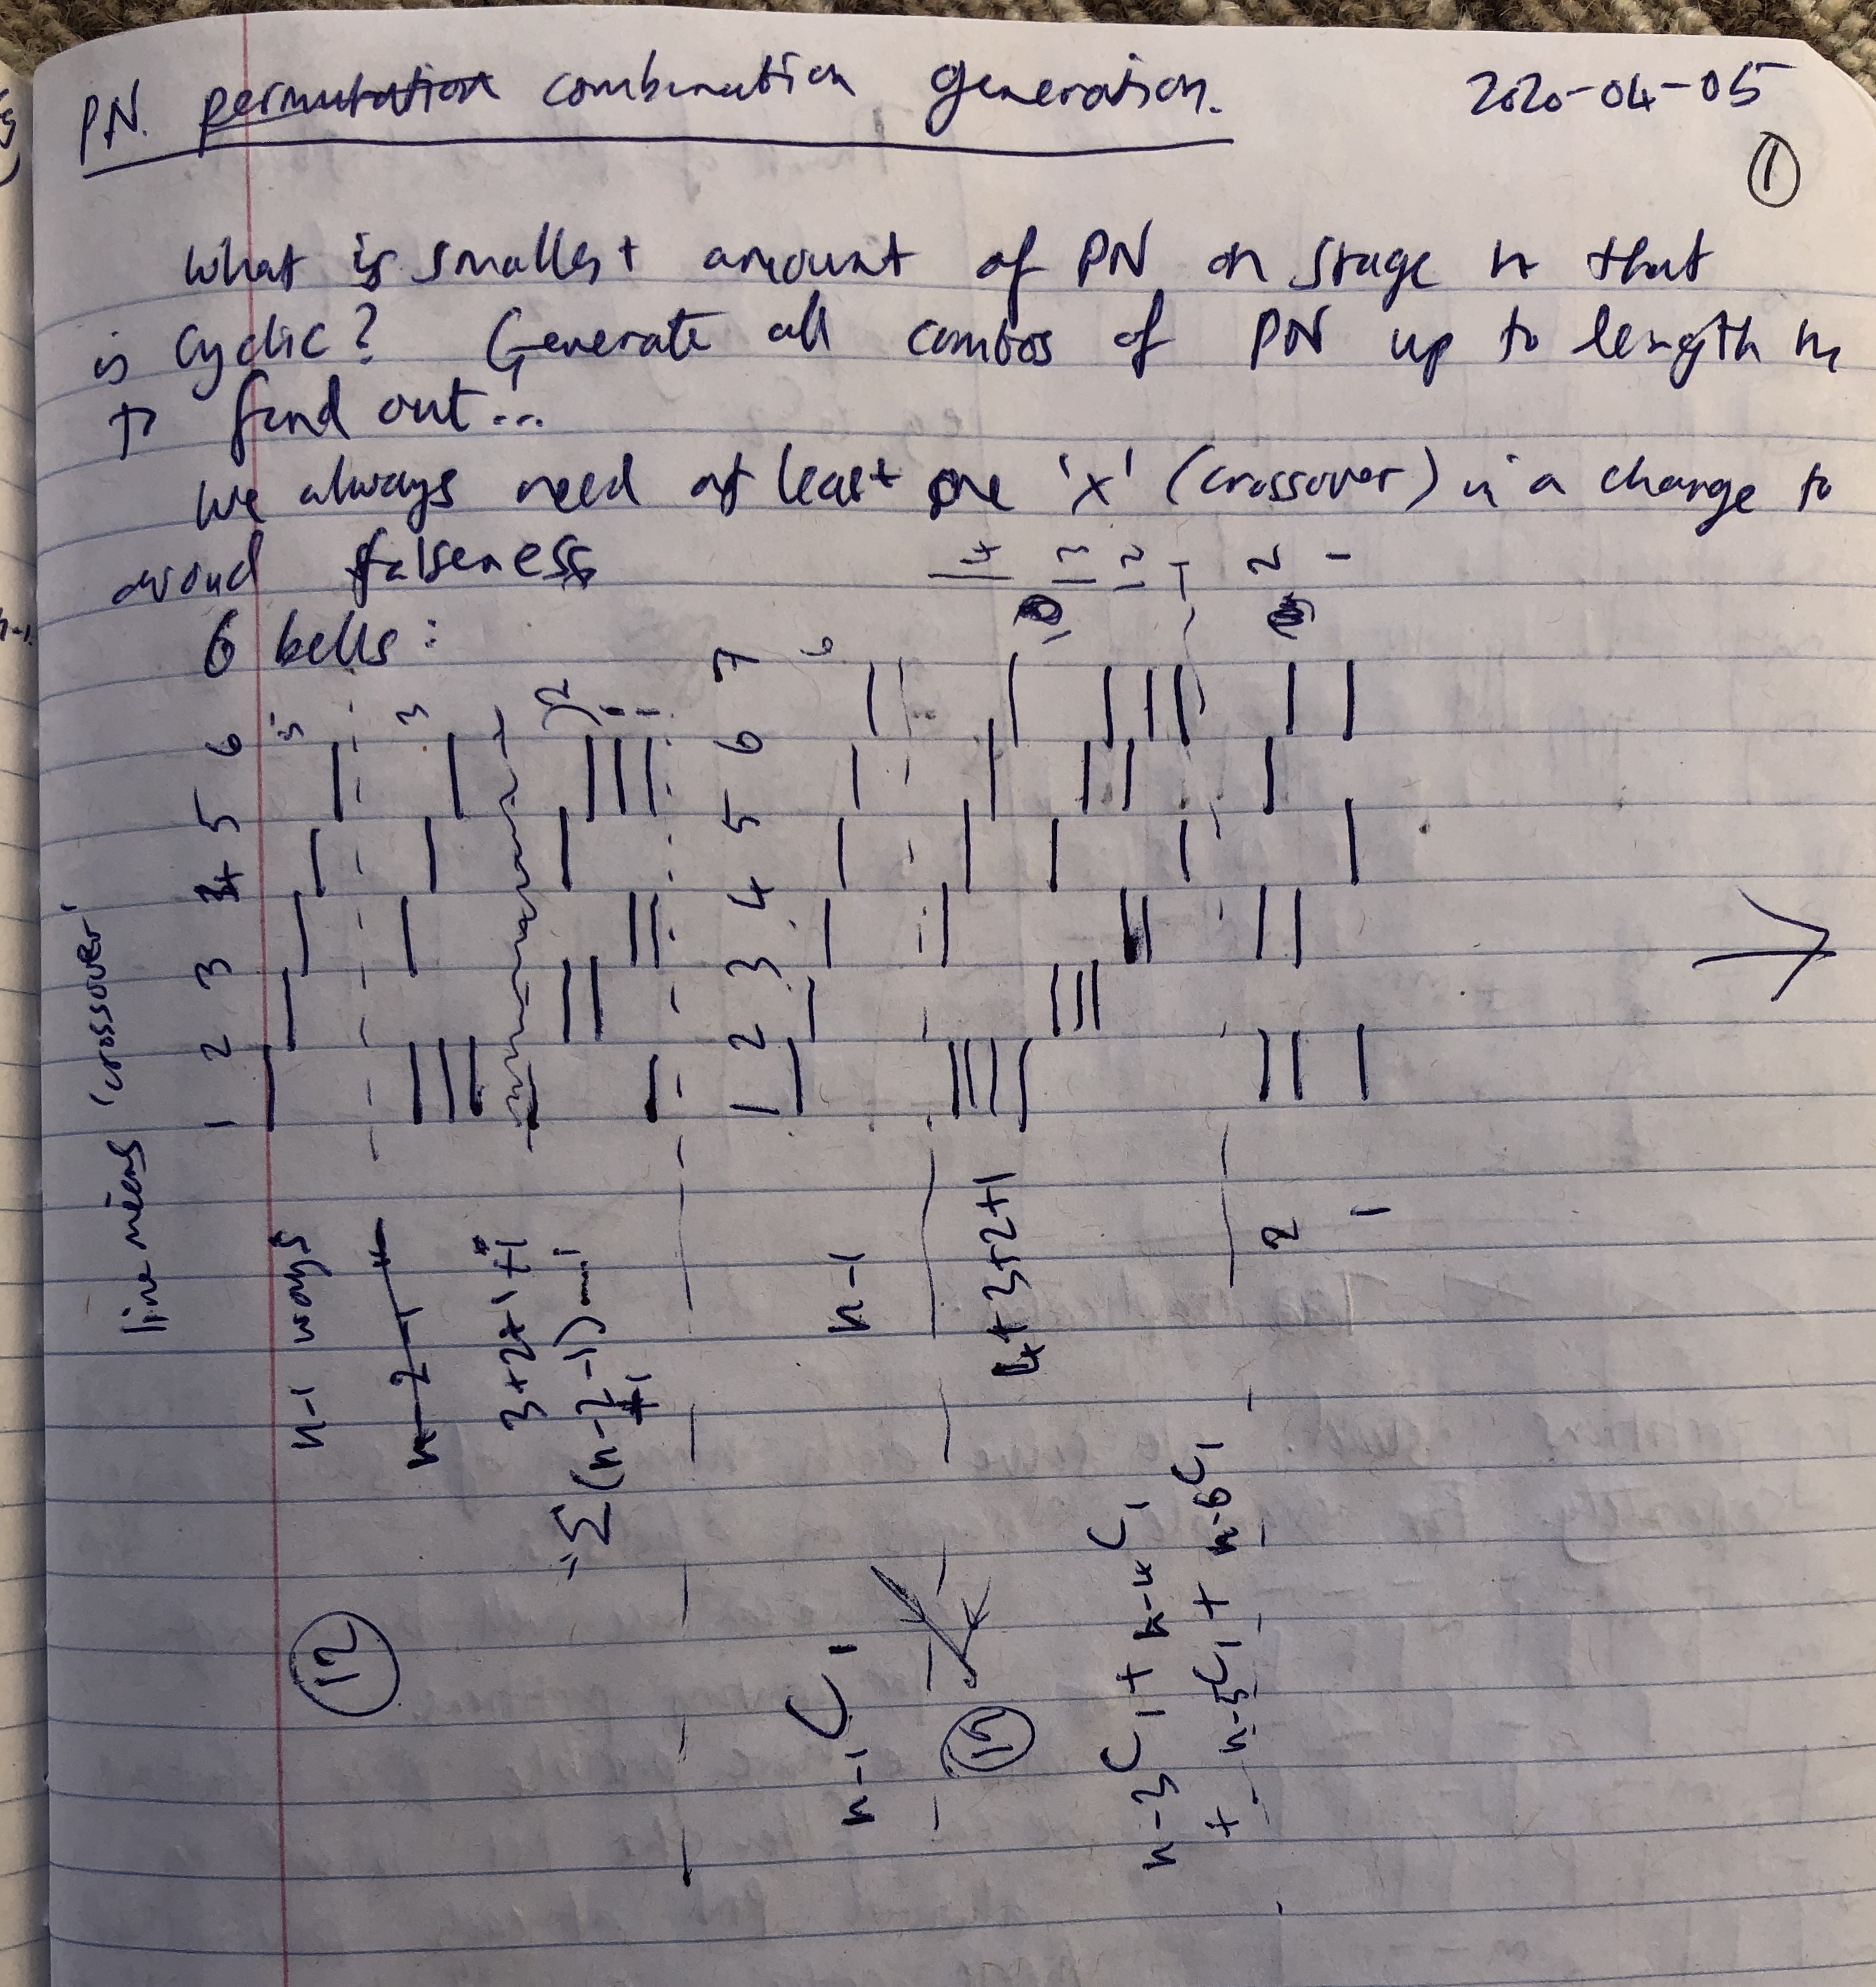 PN. permutation combination generation. 2020-04-05
①
What is smallest amount of PN on stage n that
is cyclic? Generate all combos of PN up to length n
to find out...
We always need at least one 'x' (crossover) in a change to
avoid falseness
4 3 2 1 2 1
6 bells:
line means 'crossover'
1 2 3 4 5 6
5 3 2 1 1
1 2 3 4 5 6 7
6
n-1 ways
n-2-1
3+2+1+1
= Σ(n-2-1)
12
n-1
4+3+2+1
2
1
n-1C1
15
n-3C1 + n-4C1
+ n-5C1 + n-6C1